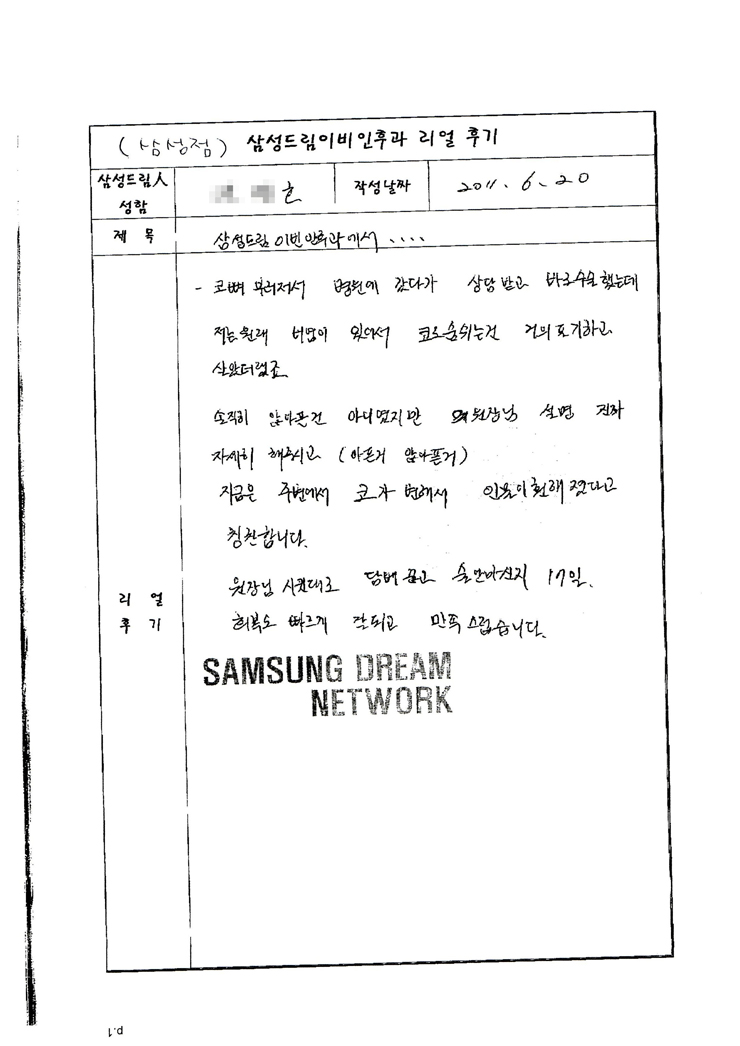 (삼성점) 삼성드림이비인후과 리얼 후기
삼성드림人 성함 호 작성날짜 2011. 6. 20
제 목 삼성드림 이빈인후과에서 ....
- 코뼈 부러져서 병원에 갔다가 상담 받고 바로수술했는데
저는 원래 비염이 있어서 코로숨쉬는건 거의 포기하고
살았더랬죠.
솔직히 않아픈건 아니였지만 원장님 설명 진짜
자세히 해주시고 (아픈거 않아픈거)
지금은 주변에서 코가 변해서 인물이 훤해 졌다고
칭찬합니다.
원장님 시킨대로 담배 끊고 술안마신지 17일.
회복도 빠르게 잘되고 만족스럽습니다.
리 얼
후 기
SAMSUNG DREAM
NETWORK
p.1